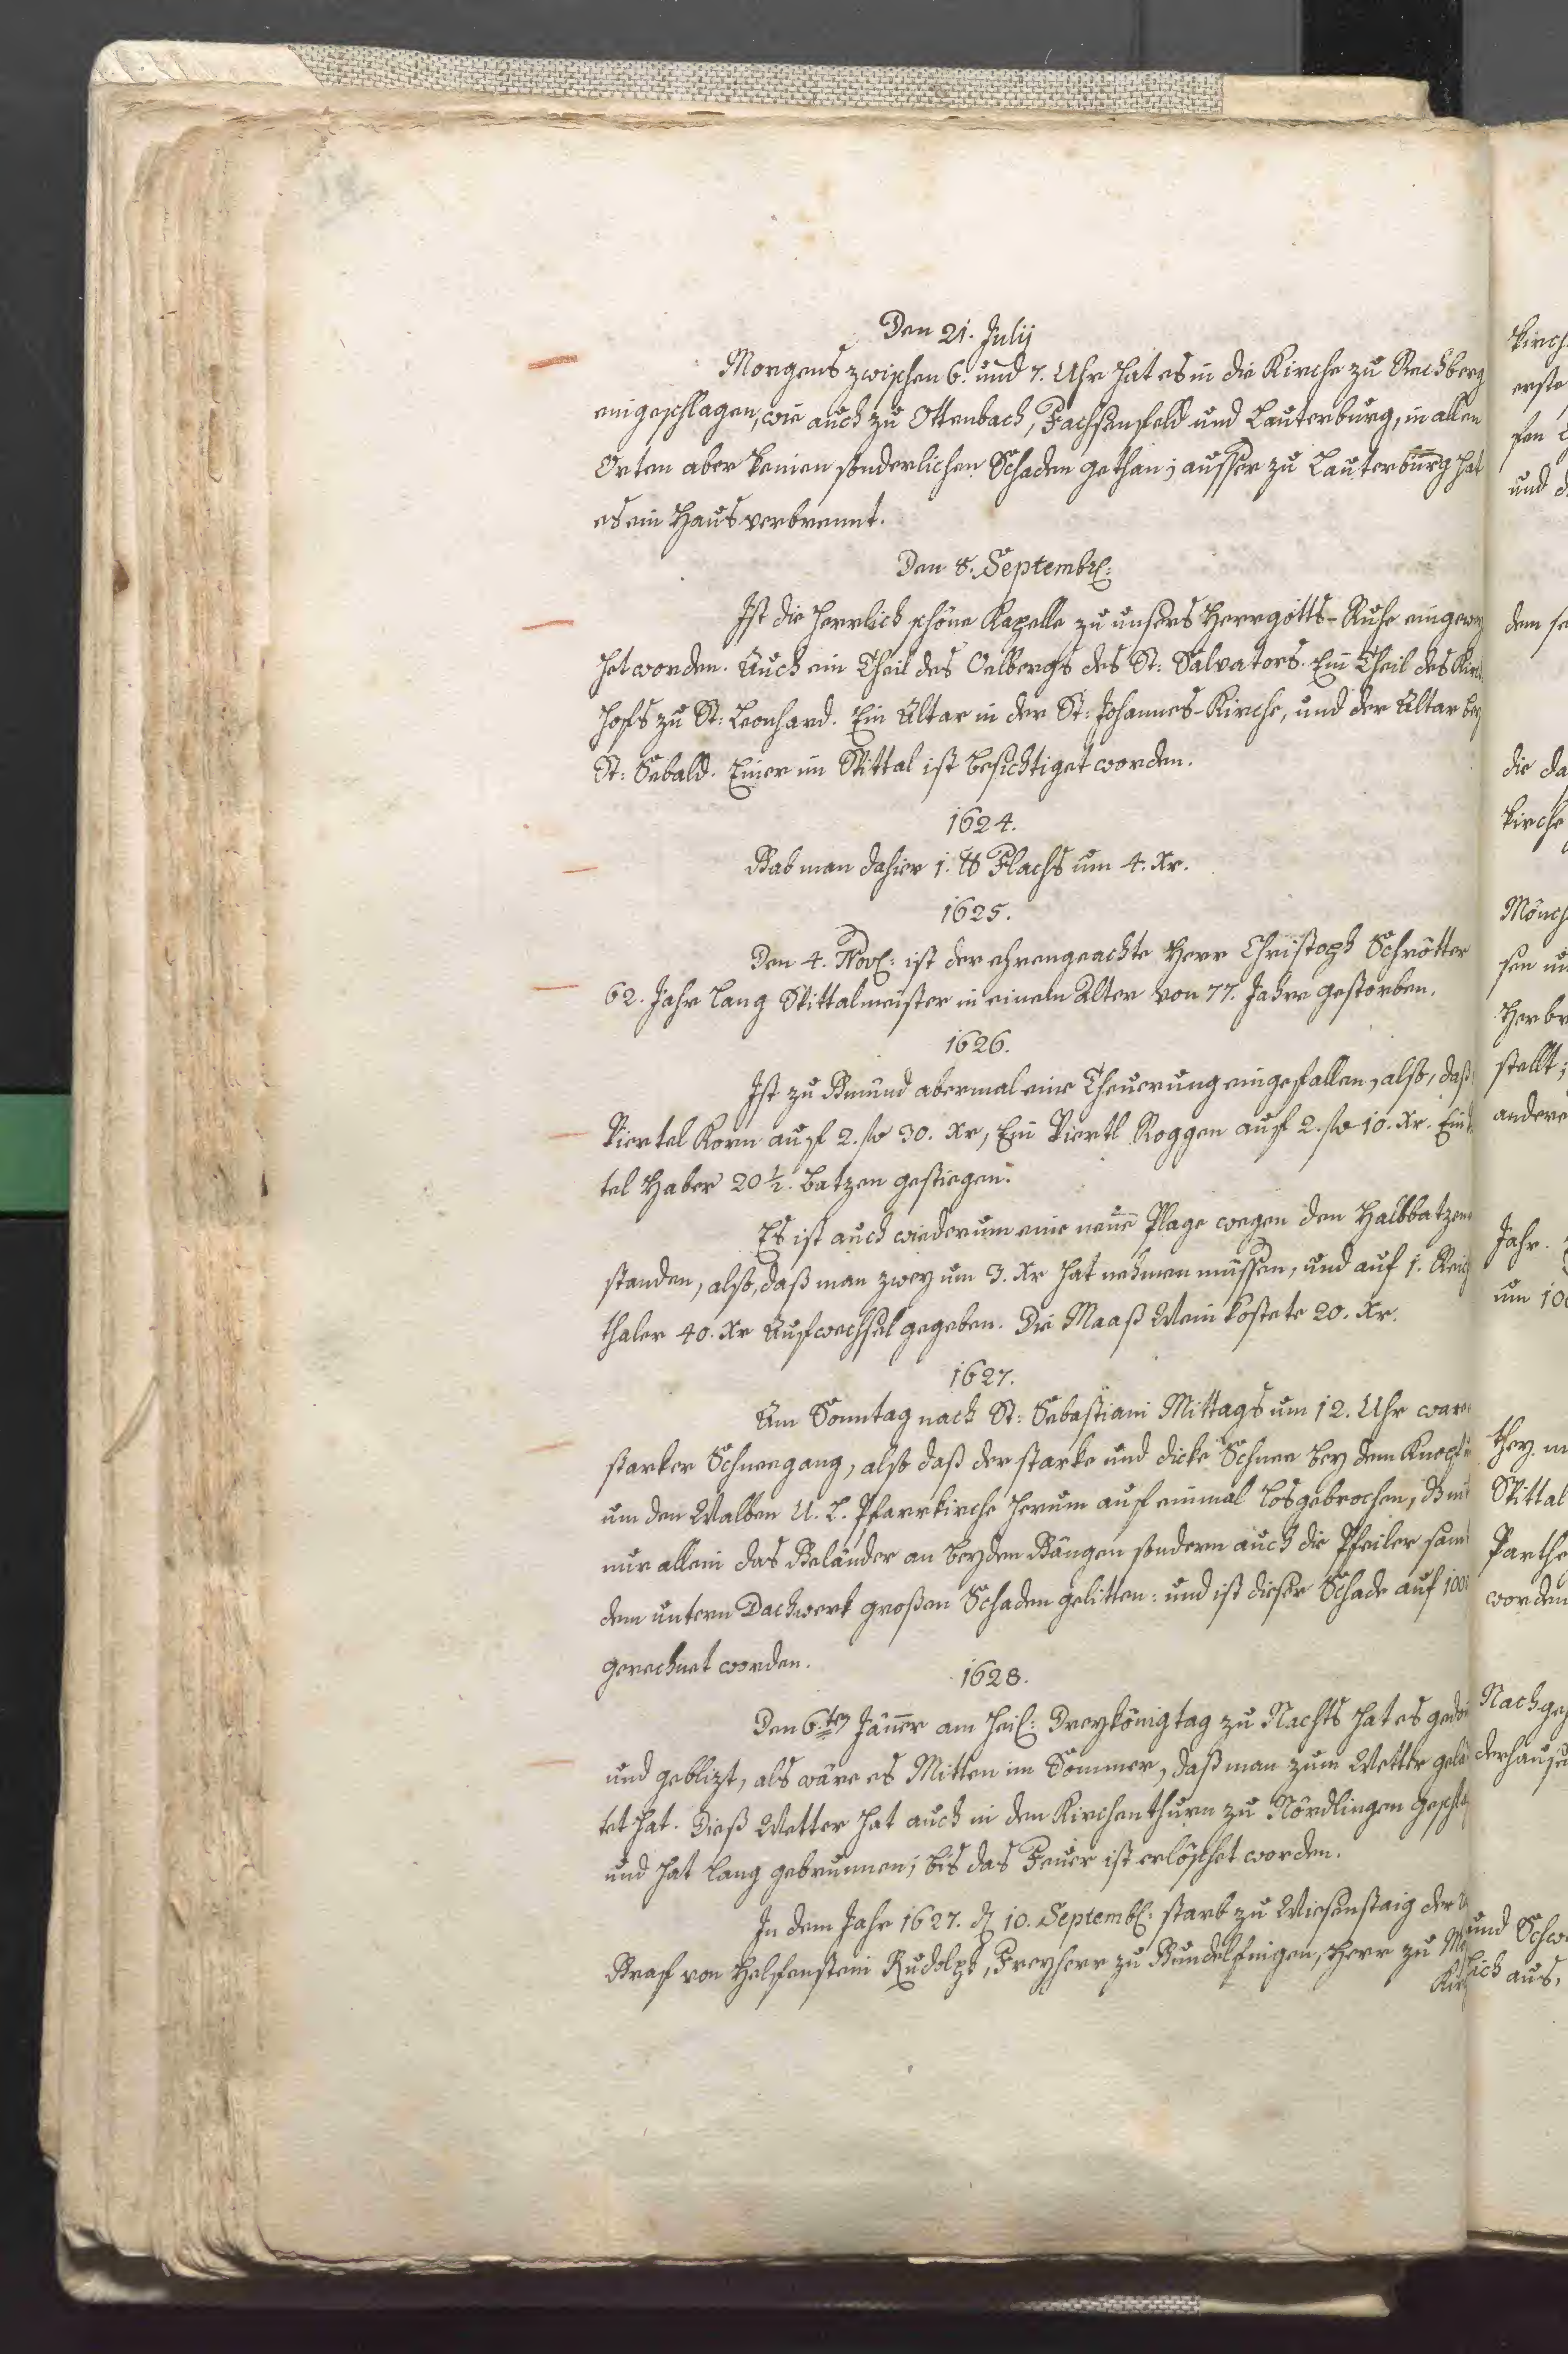 Den 21. Julij
Morgens zwischen 6. und 7. Uhr hat es in die Kirche zu Rechberg
eingeschlagen, wie auch zu Ottenbach, Fachsenfeld und Lauterburg, in allen
Orten aber keinen sonderlichen Schaden gethan; ausser zu Lauterburg hat
es ein Haus verbrennt.
Den 8. Septembr:
Ist die herrlich schöne Kapelle zu unsers Herrgotts-Ruhe eingewey
het worden. Auch ein Theil des Oelbergs des St: Salvators. Ein Theil des Kirch
hofs zu St: Leonhard. Ein Altar in der St: Johannes-Kirche, und der Altar bey
St: Sebald. Einer im Spittal ist besichtiget worden.
1624.
Gab man dahier 1. ℔ Flachs um 4. Xr.
1625.
Den 4. Nov: ist der ehrengeachte Herr Christoph Schrötter
62. Jahr lang Spittalmeister in einem Alter von 77. Jahre gestorben.
1626.
Ist zu Gmünd abermal eine Theuerung eingefallen, also, daß
Viertel Korn auf 2. fl 30. Xr, Ein Viertl Roggen auf 2. fl 10. Xr. Ein
tel Haber 20 ½. Batzen gestiegen.
Es ist auch wiederum eine neue Plage wegen den Halbbatzen
standen, also, daß man zwey um 3. Xr hat nehmen müssen, und auf 1. Reichs
thaler 40. Xr Aufwechsel gegeben. Die Maaß Wein kostete 20. Xr.
1627.
Am Sonntag nach St: Sebastiani Mittags um 12. Uhr ware
starker Schneegang, also daß der starke und dicke Schnee bey dem Knopf
um den Walben U. L. Pfarrkirche herum auf einmal losgebrochen,
nur allein das Geländer an beyden Gängen sondern auch die Pfeiler samt
dem untern Dachwerk großen Schaden gelitten: und ist dieser Schade auf 1000
gerechnet worden.
1628.
Den 6.ten Jäner am heil: Dreykönigtag zu Nachts hat es gedon
und geblizt, als wäre es Mitten im Sommer, daß man zum Wetter geläu
tet hat. Dieß Wetter hat auch in den Kirchenthurn zu Nördlingen geschla
und hat lang gebrunnen; bis das Feuer ist erlöschet worden.
In dem Jahr 1627. d 10. Septemb: starb zu Wiesenstaig der
Graf von Helfenstein Rudolph, Freyherr zu Gundelfingen, Herr zu
Kirch
erste
und
dem
die da
Kirche
Mönch
sen
Her
stellt;
andere
Jahr.
um 100
they.
Spittal
Parthe
worden
Nach
derhausen
und Schw
lich aus,